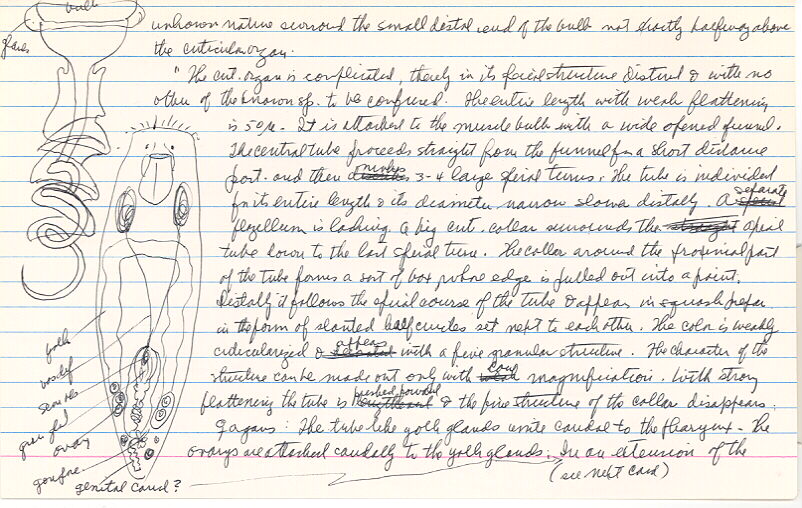 bulb
unknown nature surround the small distal end of the bulb not exactly halfway above
the cuticular organ.
"The cut. organ is complicated, thereby in its special structure distinct & with no
other of the known sp. to be confused. The entire length with weak flattening
is 50µ. It is attached to the muscle bulb with a wide opened funnel.
The central tube proceeds straight from the funnel for a short distance
post. and then makes 3-4 large spiral turns. The tube is individed
in its entire length & its diameter narrow slower distally. A separate
flagellum is lacking. A big cut. collar surrounds the spiral
tube down to the last spiral turn. The collar around the proximal part
of the tube forms a sort of box, whose edge is pulled out into a point.
Distally it follows the spiral course of the tube & appears in squash prepar.
in the form of slanted half circles set next to each other. The color is weakly
cuticularized & appears with a fine granular structure. The character of the
structure can be made out only with magnification. With strong
flattening the tube is pushed forward & the fine structure of the collar disappears.
♀ agans: The tube like yolk glands unite caudal to the pharynx. The
ovarys are attached caudally to the yolk glands. In an extension of the
(see next card)
yolk
ovary
genital canal?